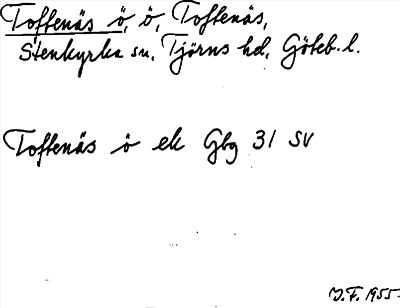 Toftenäs ö, ö, Toftenäs,
Stenkyrka sn, Tjörns hd, Göteb. l.
Toftenäs ö ek Gbg 31 SV
J.F. 1955.